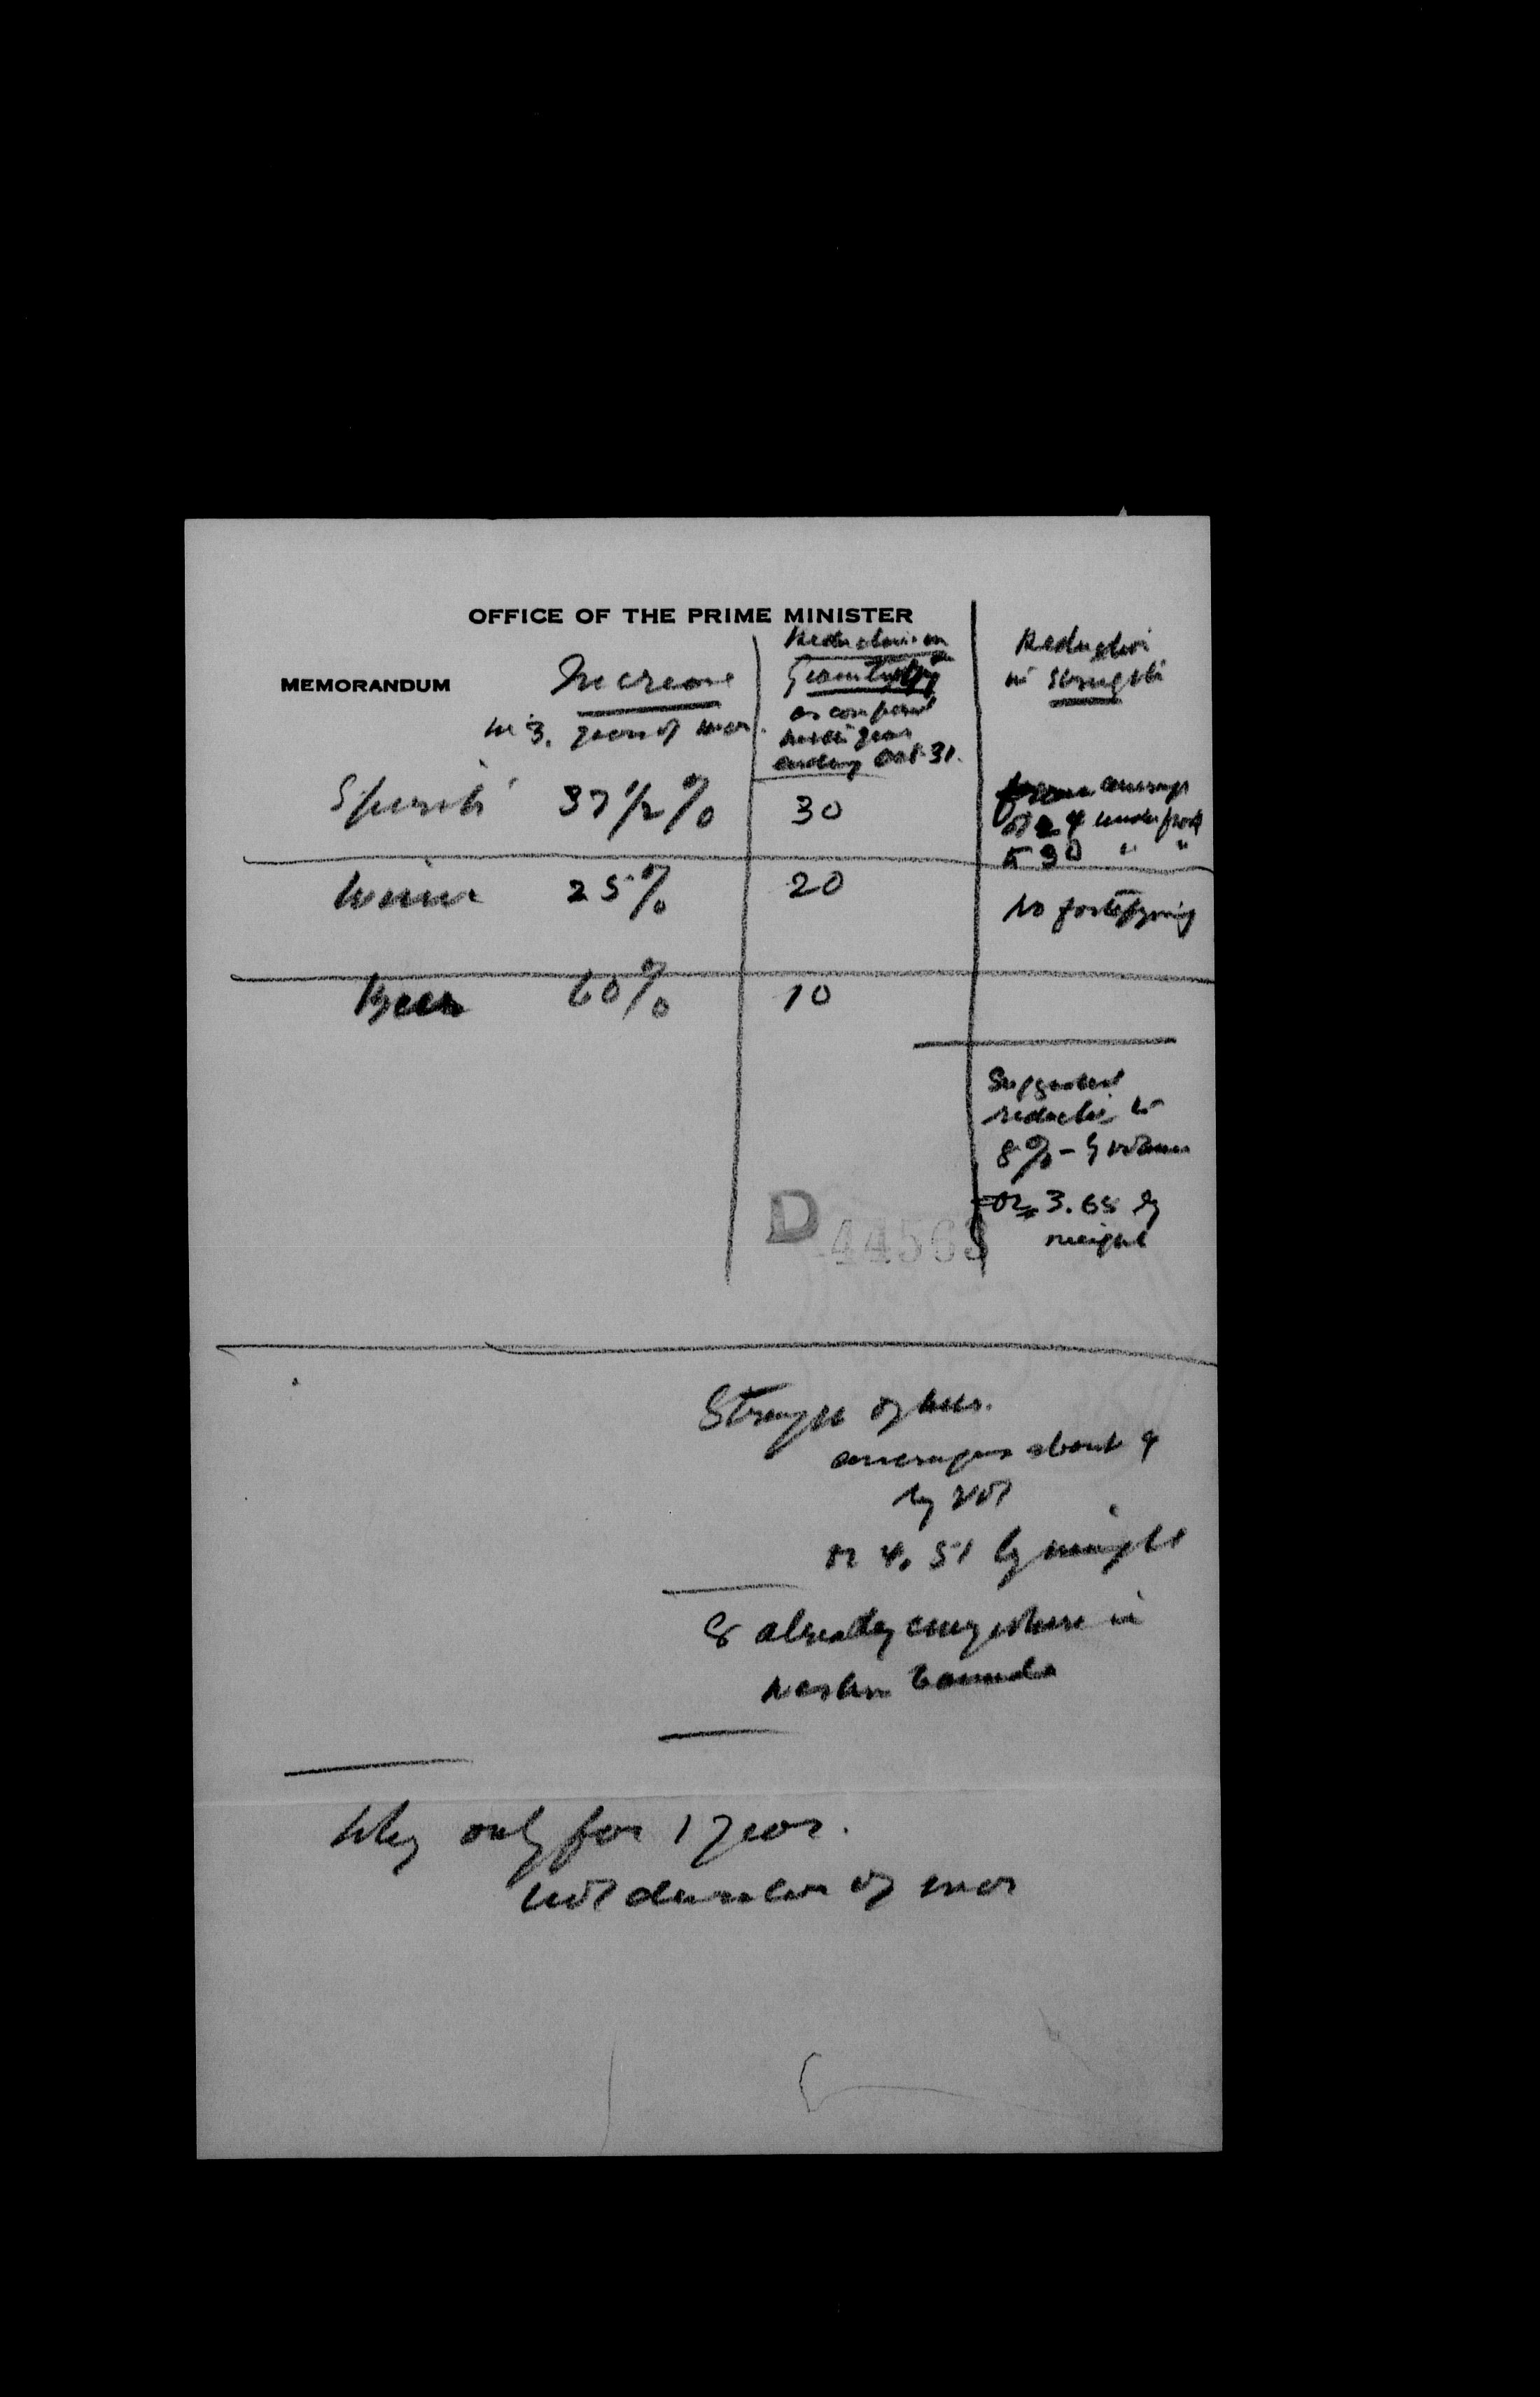 OFFICE OF THE PRIME MINISTER
MEMORANDUM
Increase
in 3. years of war.
Reduction in
Quantity
as compared
with year
ending Oct. 31.
Reduction
in strength
Spirits 37 1/2 % 30
from average
of 24 under proof
to 30 " "
Wine 25 % 20
No fortifying
Beer 60 % 10
Suggested
reduction to
8 % - by volume
or 3.65 by
weight
D 44563
Strength of beer.
averages about 9
by vol
or 4.51 by weight
8 already anywhere in
Western Canada
Why only for 1 year.
not duration of war